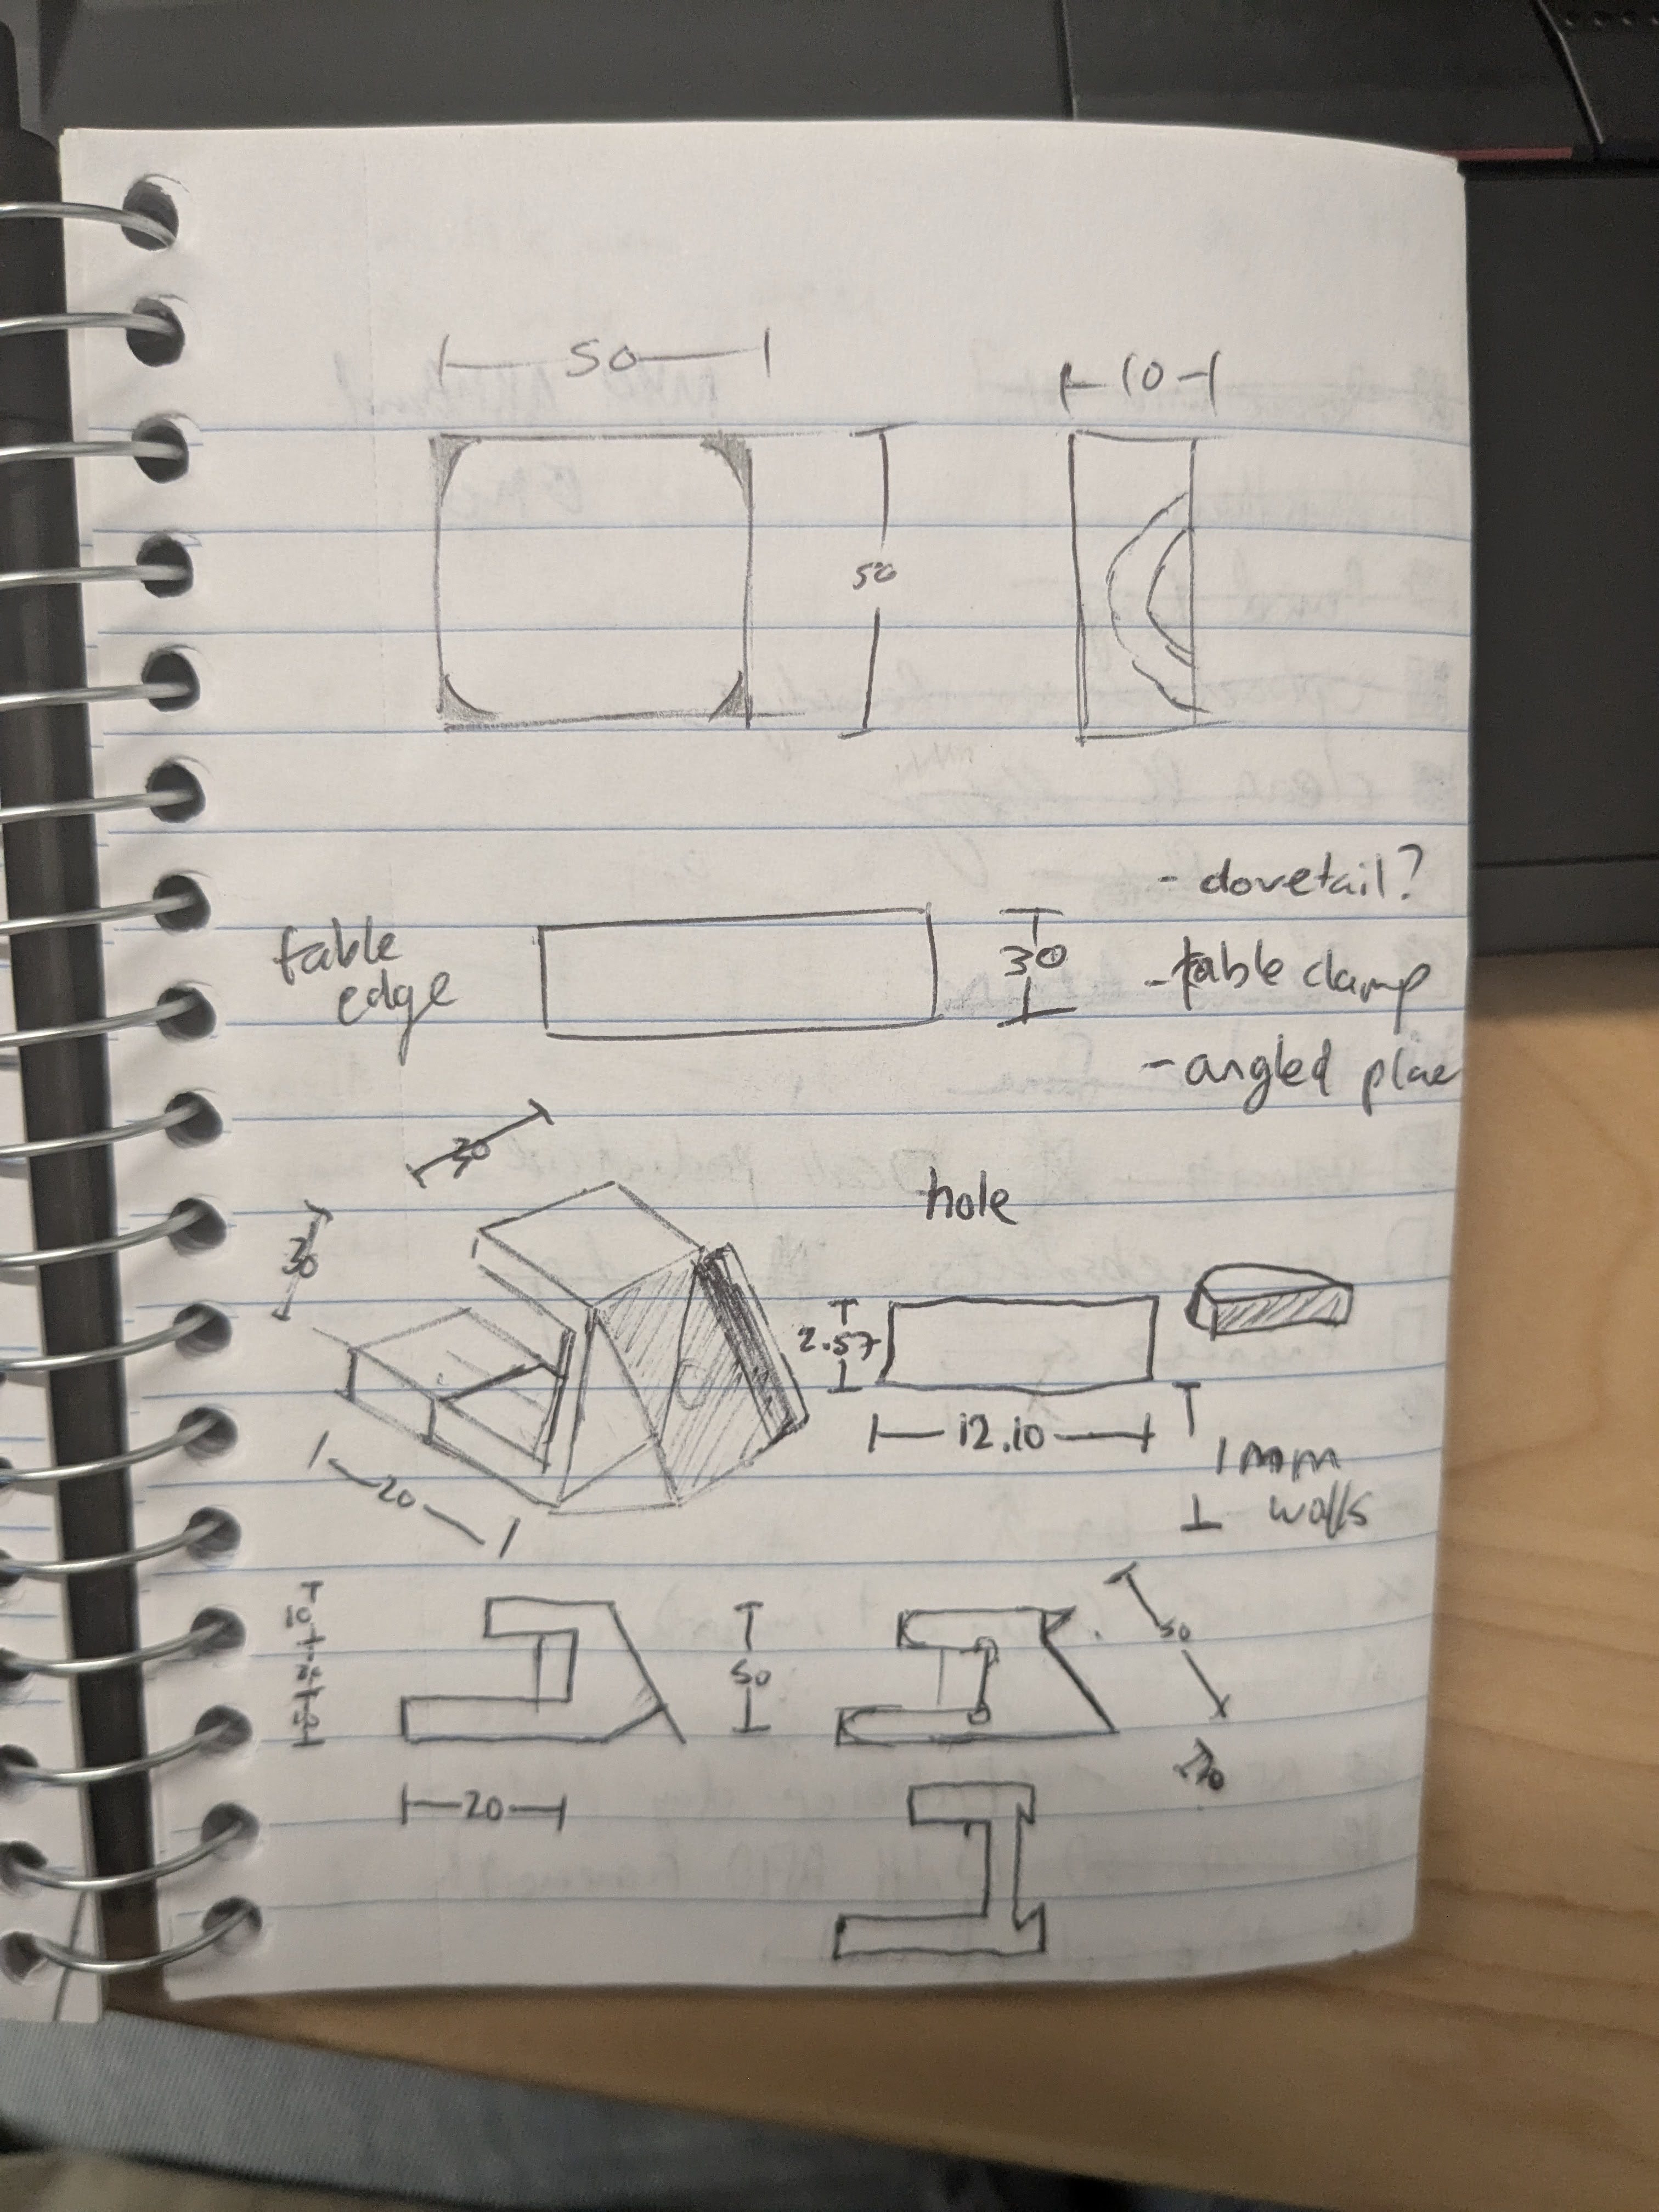 50
10
50
- dovetail?
table
edge
30
- table clamp
- angled plae
30
hole
30
2.57
12.10
20
1mm
walls
10
10
50
50
20